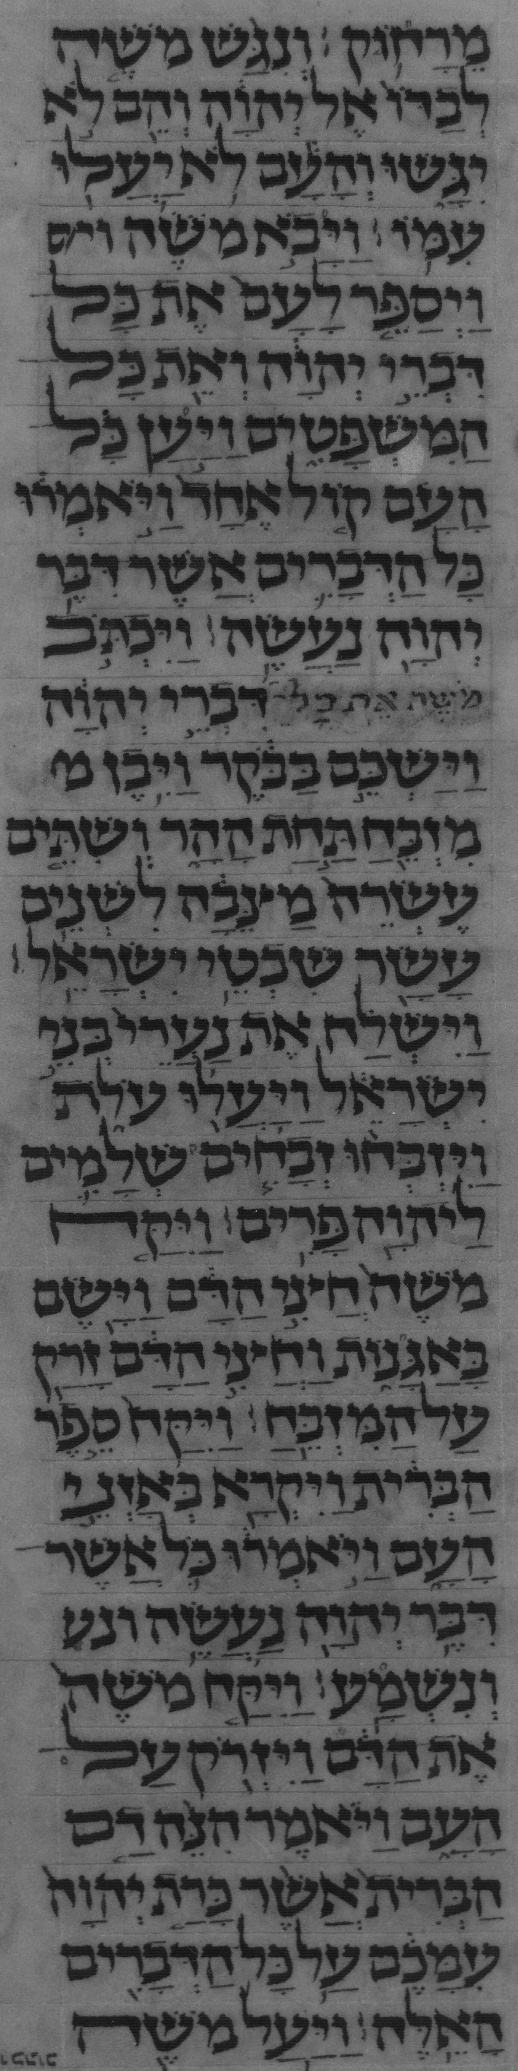 מֵרָחֹֽק׃ וְנִגַּ֨שׁ מֹשֶׁ֤ה
לְבַדּוֹ֙ אֶל יְהוָ֔ה וְהֵ֖ם לֹ֣א
יִגָּ֑שׁוּ וְהָעָ֕ם לֹ֥א יַעֲל֖וּ
עִמּֽוֹ׃ וַיָּבֹ֣א מֹשֶׁ֗ה ויס
וַיְסַפֵּ֤ר לָעָם֙ אֵ֚ת כָּל
דִּבְרֵ֣י יְהוָ֔ה וְאֵ֖ת כָּל
הַמִּשְׁפָּטִ֑ים וַיַּ֨עַן כָּל
הָעָ֜ם ק֤וֹל אֶחָד֙ וַיֹּ֣אמְר֔וּ
כָּל הַדְּבָרִ֛ים אֲשֶׁר דִּבֶּ֥ר
יְהוָ֖ה נַעֲשֶֽׂה׃ וַיִּכְתֹּ֣ב
מֹשֶׁ֗ה אֵ֚ת כָּל דִּבְרֵ֣י יְהוָ֔ה
וַיַּשְׁכֵּ֣ם בַּבֹּ֔קֶר וַיִּ֥בֶן מ
מִזְבֵּ֖חַ תַּ֣חַת הָהָ֑ר וּשְׁתֵּ֤ים
עֶשְׂרֵה֙ מַצֵּבָ֔ה לִשְׁנֵ֥ים
עָשָׂ֖ר שִׁבְטֵ֥י יִשְׂרָאֵֽל׃
וַיִּשְׁלַ֗ח אֶֽת נַעֲרֵי֙ בְּנֵ֣י
יִשְׂרָאֵ֔ל וַיַּעֲל֖וּ עֹלֹ֑ת
וַֽיִּזְבְּח֞וּ זְבָחִ֧ים שְׁלָמִ֛ים
לַיהוָ֖ה פָּרִֽים׃ וַיִּקַּ֤ח
מֹשֶׁה֙ חֲצִ֣י הַדָּ֔ם וַיָּ֖שֶׂם
בָּאַגָּנֹ֑ת וַחֲצִ֣י הַדָּ֔ם זָרַ֖ק
עַל הַמִּזְבֵּֽחַ׃ וַיִּקַּח֙ סֵ֣פֶר
הַבְּרִ֔ית וַיִּקְרָ֖א בְּאָזְנֵ֣י
הָעָ֑ם וַיֹּ֣אמְר֔וּ כֹּ֛ל אֲשֶׁר
דִּבֶּ֥ר יְהוָ֖ה נַעֲשֶׂ֥ה ונש
וְנִשְׁמָֽע׃ וַיִּקַּ֤ח מֹשֶׁה֙
אֶת הַדָּ֔ם וַיִּזְרֹ֖ק עַל
הָעָ֑ם וַיֹּ֗אמֶר הִנֵּ֤ה דַם
הַבְּרִית֙ אֲשֶׁ֨ר כָּרַ֤ת יְהוָה֙
עִמָּכֶ֔ם עַ֥ל כָּל הַדְּבָרִ֖ים
הָאֵֽלֶּה׃ וַיַּ֥עַל מֹשֶׁ֖ה